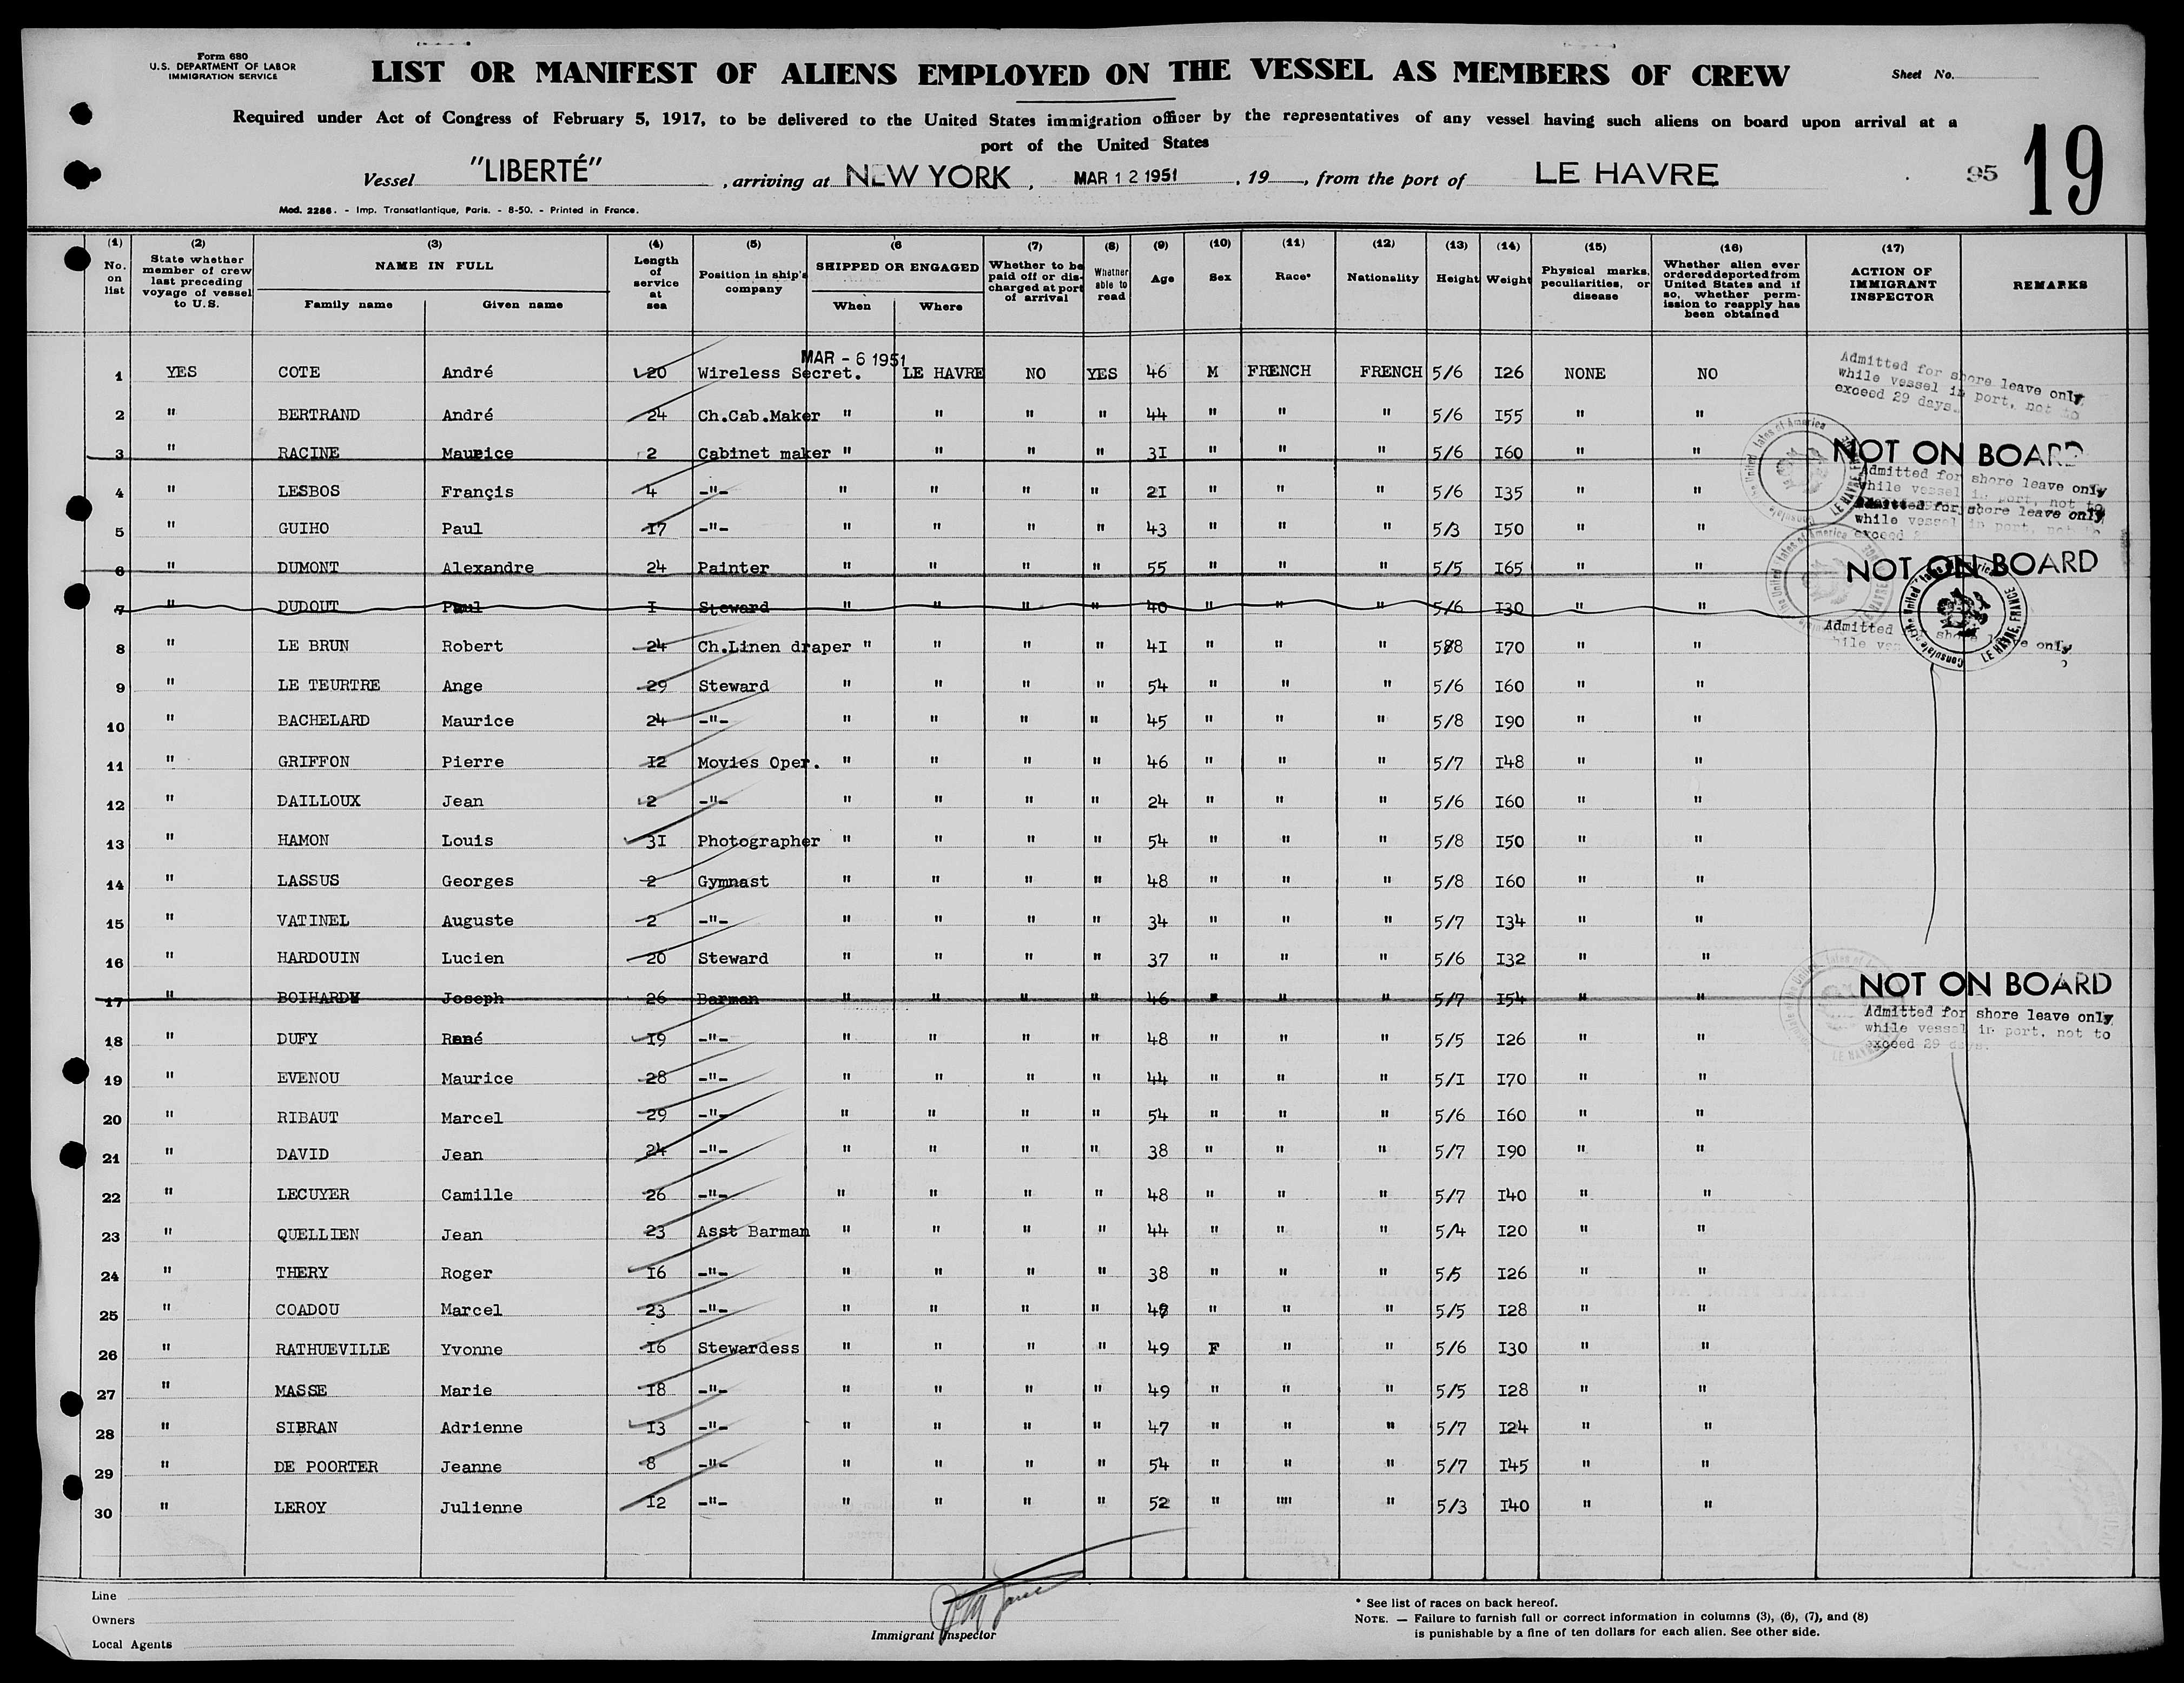 Form 680
U.S. DEPARTMENT OF LABOR
IMMIGRATION SERVICE
LIST OR MANIFEST OF ALIENS EMPLOYED ON THE VESSEL AS MEMBERS OF CREW
Sheet No.
Required under Act of Congress of February 5, 1917, to be delivered to the United States immigration officer by the representatives of any vessel having such aliens on board upon arrival at a
port of the United States
Vessel "LIBERTÉ", arriving at NEW YORK, MAR 12 1951, 19, from the port of LE HAVRE 95 19
Med. 2286. - Imp. Transatlantique, Paris. - 8-50. - Printed in France.
(1) (2) (3) (4) (5) (6 (7) (8) (9) (10) (11) (12) (13) (14) (15) (16) (17)
No. on list
State whether member of crew last preceding voyage of vessel to U.S.
NAME IN FULL
Family name Given name
Length of service at sea
Position in ship's company
SHIPPED OR ENGAGED
When Where
Whether to be paid off or discharged at port of arrival
Whether able to read
Age
Sex
Race*
Nationality
Height
Weight
Physical marks, peculiarities, or disease
Whether alien ever ordered deported from United States and if so, whether permission to reapply has been obtained
ACTION OF IMMIGRANT INSPECTOR
REMARKS
MAR - 6 1951
1 YES COTE André 20 Wireless Secret. LE HAVRE NO YES 46 M FRENCH FRENCH 5/6 I26 NONE NO
Admitted for shore leave only
while vessel in port, not to
exceed 29 days.
2 " BERTRAND André 24 Ch.Cab.Maker " " " " 44 " " " 5/6 I55 " "
3 " RACINE Maurice 2 Cabinet maker " " " " 3I " " " 5/6 I60 " " NOT ON BOARD
Admitted for shore leave only
while vessel in port, not to
4 " LESBOS Françis 4 -"- " " " " 2I " " " 5/6 I35 " "
Admitted for shore leave only
while vessel in port, not to
exceed
5 " GUIHO Paul I7 -"- " " " " 43 " " " 5/3 I50 " "
6 " DUMONT Alexandre 24 Painter " " " " 55 " " " 5/5 I65 " " NOT ON BOARD
7 " DUDOUT Paul I Steward " " " " 40 " " " 5/6 I30 " "
Consulate of the United States of America LE HAVRE, FRANCE
Admitted for shore leave only
8 " LE BRUN Robert 24 Ch.Linen draper " " " " 4I " " " 5/8 I70 " "
9 " LE TEURTRE Ange 29 Steward " " " " 54 " " " 5/6 I60 " "
10 " BACHELARD Maurice 24 -"- " " " " 45 " " " 5/8 I90 " "
11 " GRIFFON Pierre I2 Movies Oper. " " " " 46 " " " 5/7 I48 " "
12 " DAILLOUX Jean 2 -"- " " " " 24 " " " 5/6 I60 " "
13 " HAMON Louis 3I Photographer " " " " 54 " " " 5/8 I50 " "
14 " LASSUS Georges 2 Gymnast " " " " 48 " " " 5/8 I60 " "
15 " VATINEL Auguste 2 -"- " " " " 34 " " " 5/7 I34 " "
16 " HARDOUIN Lucien 20 Steward " " " " 37 " " " 5/6 I32 " "
17 " BOIHARDY Joseph 26 Barman " " " " 46 " " " 5/7 I54 " " NOT ON BOARD
Admitted for shore leave only
while vessel in port, not to
exceed 29 days.
18 " DUFY René I9 -"- " " " " 48 " " " 5/5 I26 " "
19 " EVENOU Maurice 28 -"- " " " " 44 " " " 5/I I70 " "
20 " RIBAUT Marcel 29 -"- " " " " 54 " " " 5/6 I60 " "
21 " DAVID Jean 24 -"- " " " " 38 " " " 5/7 I90 " "
22 " LECUYER Camille 26 -"- " " " " 48 " " " 5/7 I40 " "
23 " QUELLIEN Jean 23 Asst Barman " " " " 44 " " " 5/4 I20 " "
24 " THERY Roger I6 -"- " " " " 38 " " " 5/5 I26 " "
25 " COADOU Marcel 23 -"- " " " " " " " 5/5 I28 " "
26 " RATHUEVILLE Yvonne I6 Stewardess " " " " 49 F " " 5/6 I30 " "
27 " MASSE Marie I8 -"- " " " " 49 " " " 5/5 I28 " "
28 " SIBRAN Adrienne I3 -"- " " " " 47 " " " 5/7 I24 " "
29 " DE POORTER Jeanne 8 -"- " " " " 54 " " " 5/7 I45 " "
30 " LEROY Julienne I2 -"- " " " " 52 " "" " 5/3 I40 " "
Line
Owners
Local Agents
Immigrant Inspector
* See list of races on back hereof.
NOTE. — Failure to furnish full or correct information in columns (3), (6), (7), and (8)
is punishable by a fine of ten dollars for each alien. See other side.